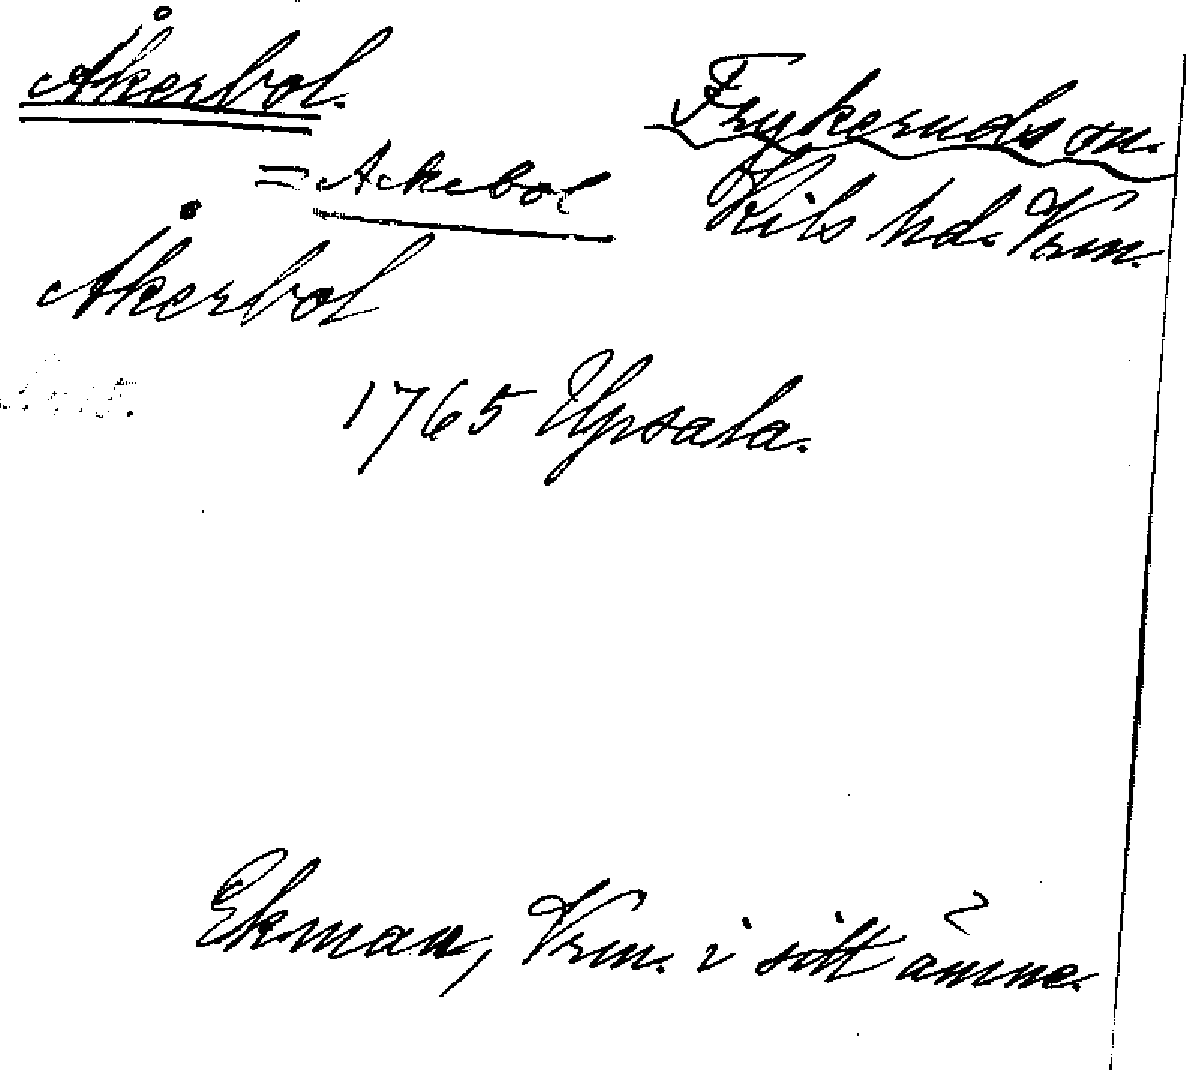 Åkerbol.
Frykeruds sn.
= Ackebol
Kils hd. Vrm.
Åkerbol
1765 Upsala.
Ekman, Vrm. i sitt ämne.